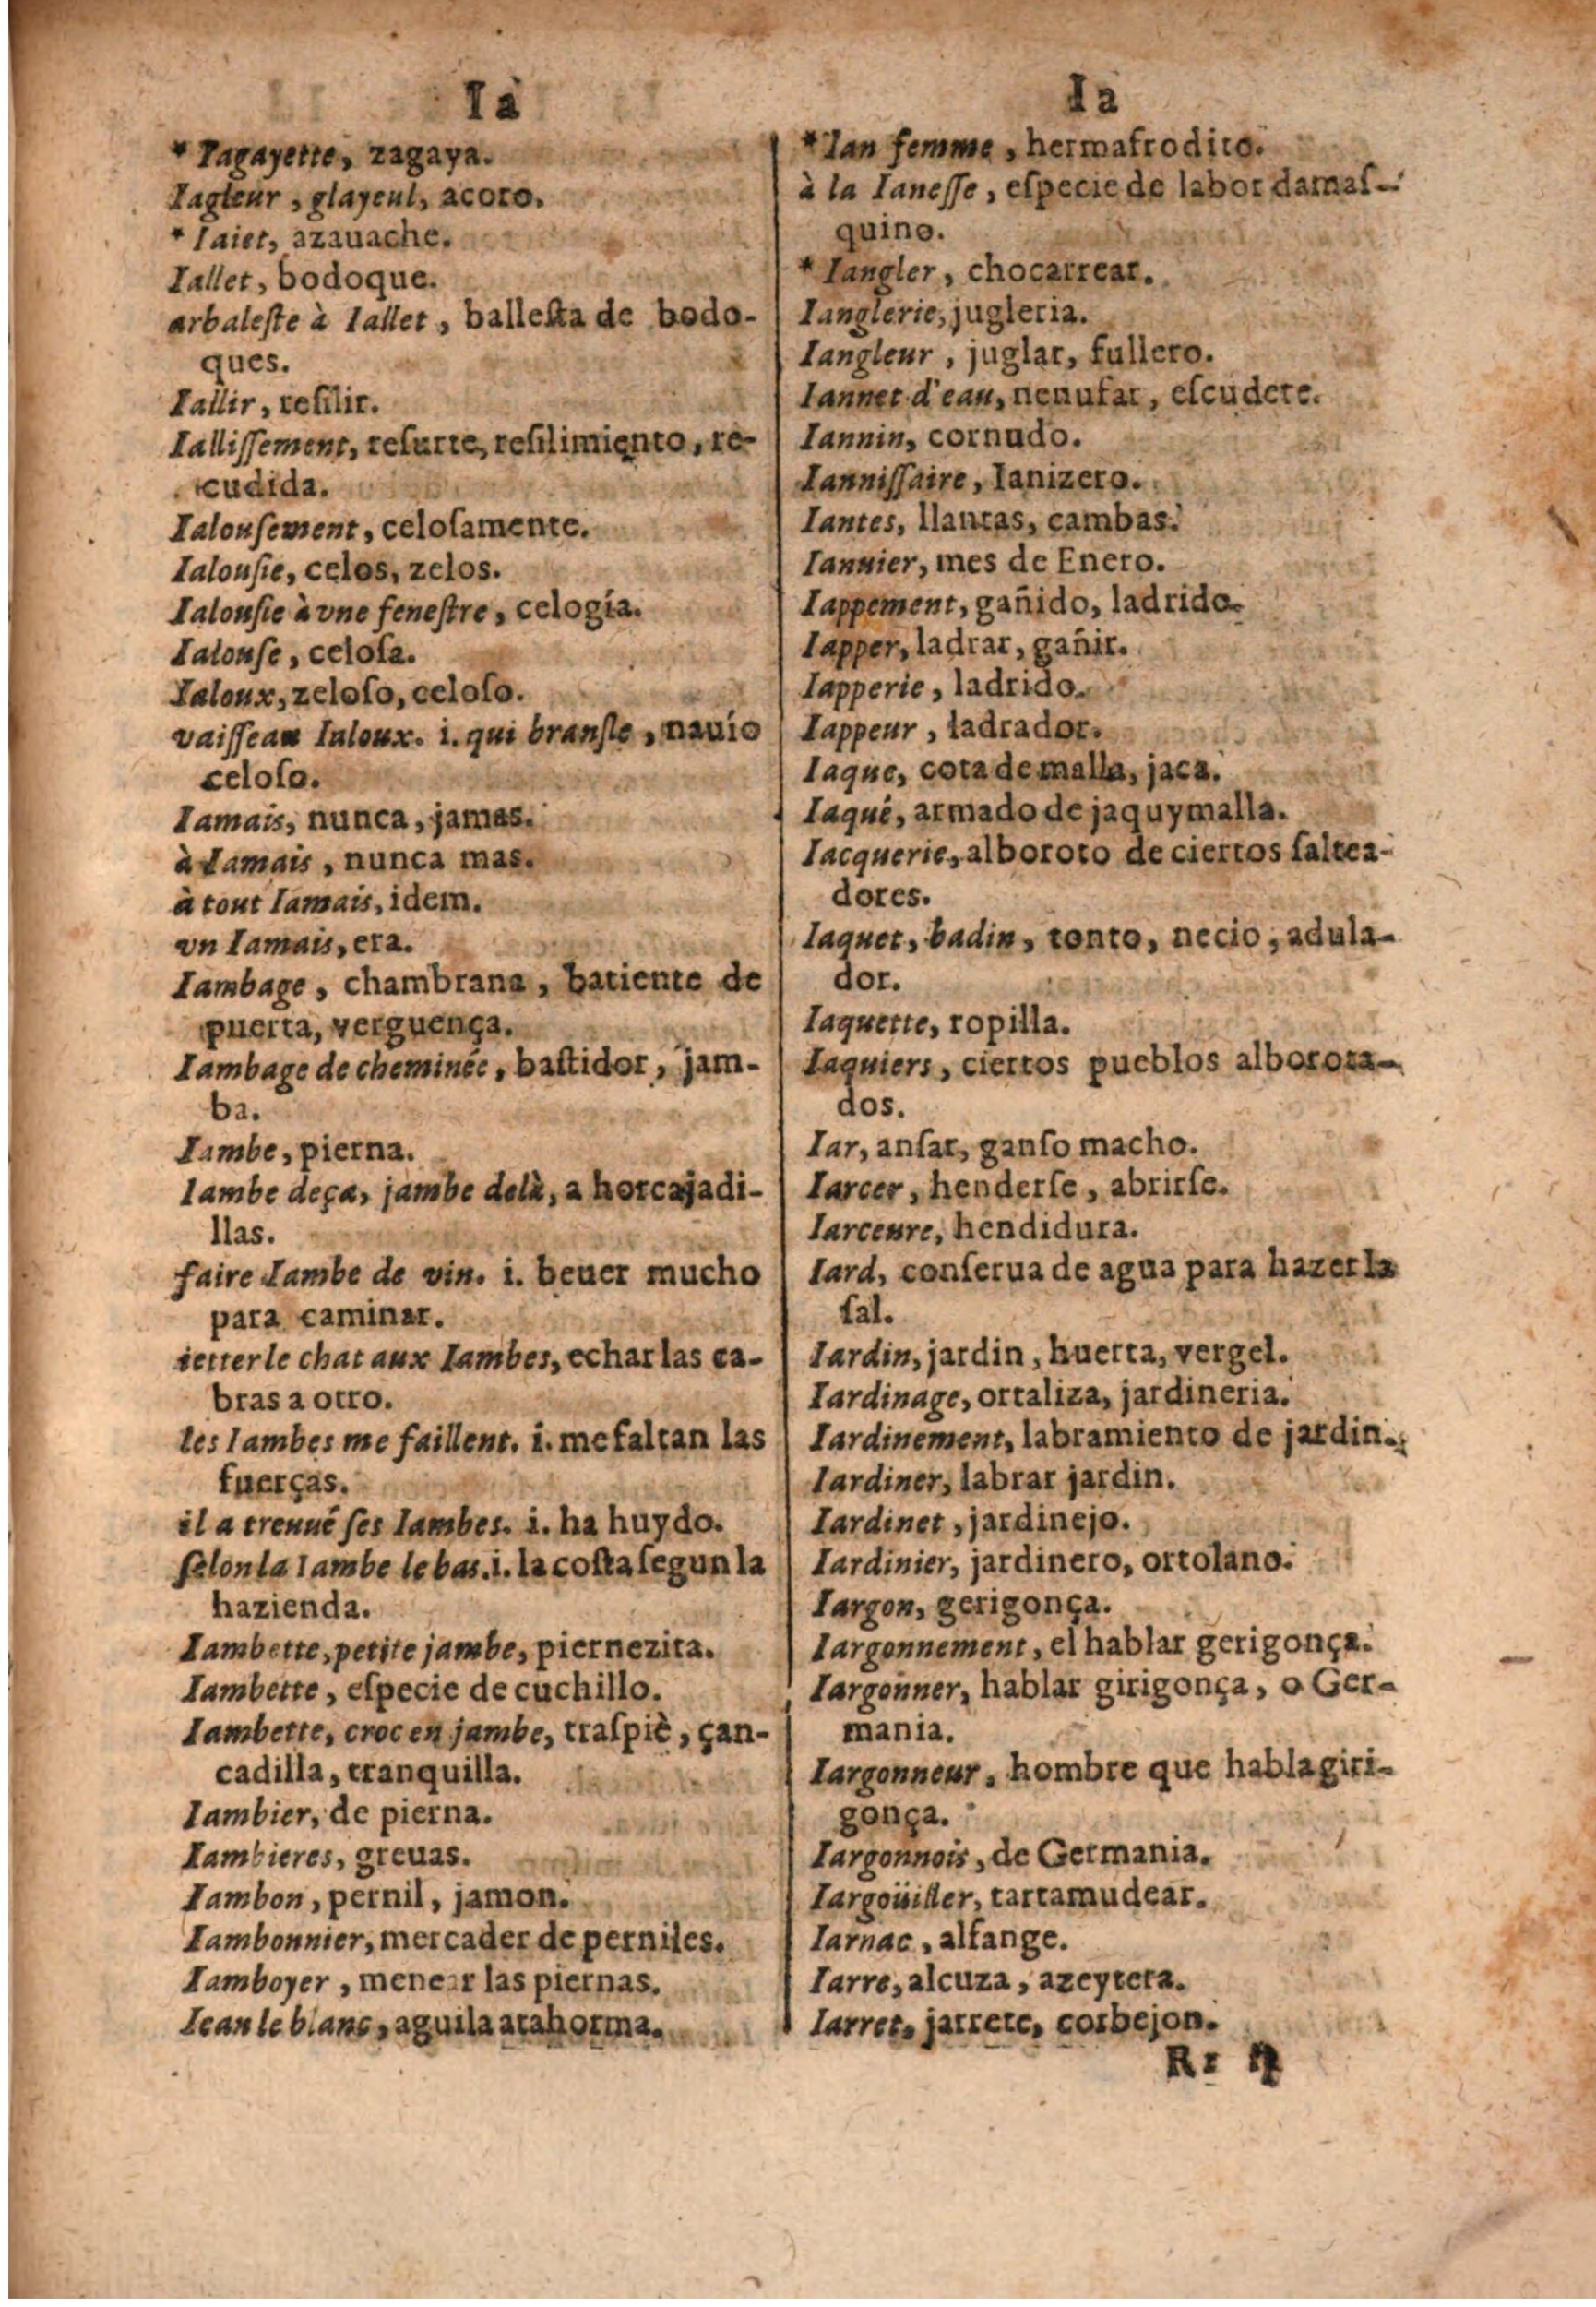 Ia
* Iagayette, zagaya.
Iagleur, glayeul, acoro.
* Iaiet, azauache.
Iallet, bodoque.
arbaleſte à Iallet, balleſta de bodo-
ques.
Iallir, reſilir.
Iallissement, reſurte, reſilimiento, re-
cudida.
Ialouſement, celoſamente.
Ialouſie, celos, zelos.
Ialouſie à vne feneſtre, celogía.
Ialouſe, celoſa.
Ialoux, zeloſo, celoſo.
vaiſſeau Ialoux. i. qui branſle, nauío
celoſo.
Iamais, nunca, jamas.
à Iamais, nunca mas.
à tout Iamais, idem.
vn Iamais, era.
Iambage, chambrana, batiente de
puerta, verguença.
Iambage de cheminée, baſtidor, jam-
ba.
Iambe, pierna.
Iambe deça, jambe delà, a horcajadi-
llas.
faire Iambe de vin. i. beuer mucho
para caminar.
ietter le chat aux Iambes, echar las ca-
bras a otro.
les Iambes me faillent. i. me faltan las
fuerças.
il a treuué ſes Iambes. i. ha huydo.
ſelon la Iambe le bas. i. la coſta ſegun la
hazienda.
Iambette, petite jambe, piernezita.
Iambette, eſpecie de cuchillo.
Iambette, croc en jambe, traſpiè, çan-
cadilla, tranquilla.
Iambier, de pierna.
Iambieres, greuas.
Iambon, pernil, jamon.
Iambonnier, mercader de perniles.
Iamboyer, menear las piernas.
Iean le blanc, aguila atahorma.
Ia
* Ian femme, hermafrodito.
à la Ianeſſe, eſpecie de labor damaſ-
quino.
* Iangler, chocarrear.
Ianglerie, jugleria.
Iangleur, juglar, fullero.
Iannet d'eau, nenufar, eſcudete.
Iannin, cornudo.
Ianniſſaire, Ianizero.
Iantes, llantas, cambas.
Ianuier, mes de Enero.
Iappement, gañido, ladrido.
Iapper, ladrar, gañir.
Iapperie, ladrido.
Iappeur, ladrador.
Iaque, cota de malla, jaca.
Iaqué, armado de jaquymalla.
Iacquerie, alboroto de ciertos ſaltea-
dores.
Iaquet, badin, tonto, necio, adula-
dor.
Iaquette, ropilla.
Iaquiers, ciertos pueblos alborota-
dos.
Iar, anſar, ganſo macho.
Iarcer, henderſe, abrirſe.
Iarceure, hendidura.
Iard, conſerua de agua para hazer la
ſal.
Iardin, jardin, huerta, vergel.
Iardinage, ortaliza, jardineria.
Iardinement, labramiento de jardin.
Iardiner, labrar jardin.
Iardinet, jardinejo.
Iardinier, jardinero, ortolano.
Iargon, gerigonça.
Iargonnement, el hablar gerigonça.
Iargonner, hablar girigonça, o Ger-
mania.
Iargonneur, hombre que habla giri-
gonça.
Iargonnois, de Germania.
Iargoüiller, tartamudear.
Iarnac, alfange.
Iarre, alcuza, azeytera.
Iarret, jarrete, corbejon.